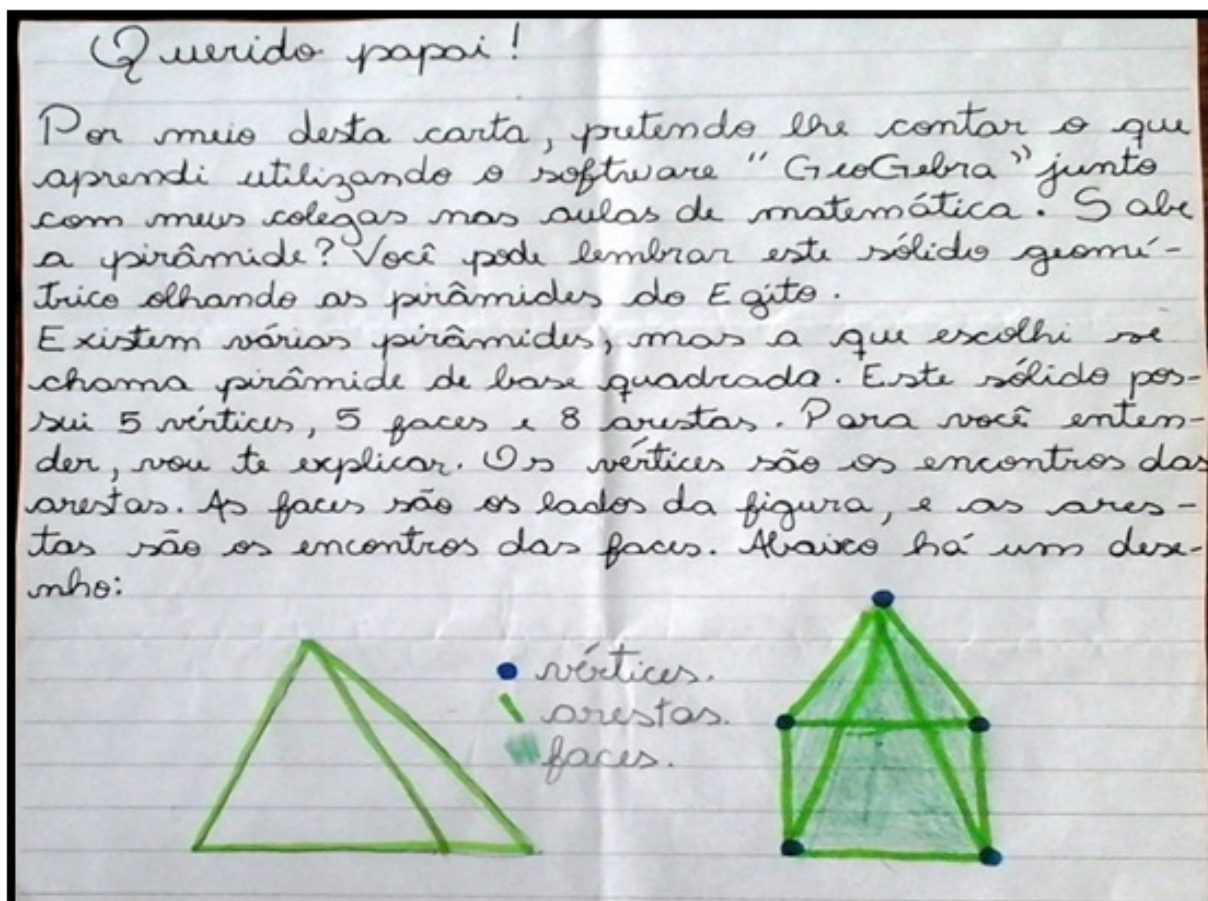 Querido papai!
Por meio desta carta, pretendo lhe contar o que
aprendi utilizando o software "GeoGebra" junto
com meus colegas nas aulas de matemática. Sabe
a pirâmide? Você pode lembrar este sólido geomé-
trico olhando as pirâmides do Egito.
Existem várias pirâmides, mas a que escolhi se
chama pirâmide de base quadrada. Este sólido pos-
sui 5 vértices, 5 faces e 8 arestas. Para você enten-
der, vou te explicar. Os vértices são os encontros das
arestas. As faces são os lados da figura, e as ares-
tas são os encontros das faces. Abaixo há um dese-
nho:
vértices.
arestas.
faces.